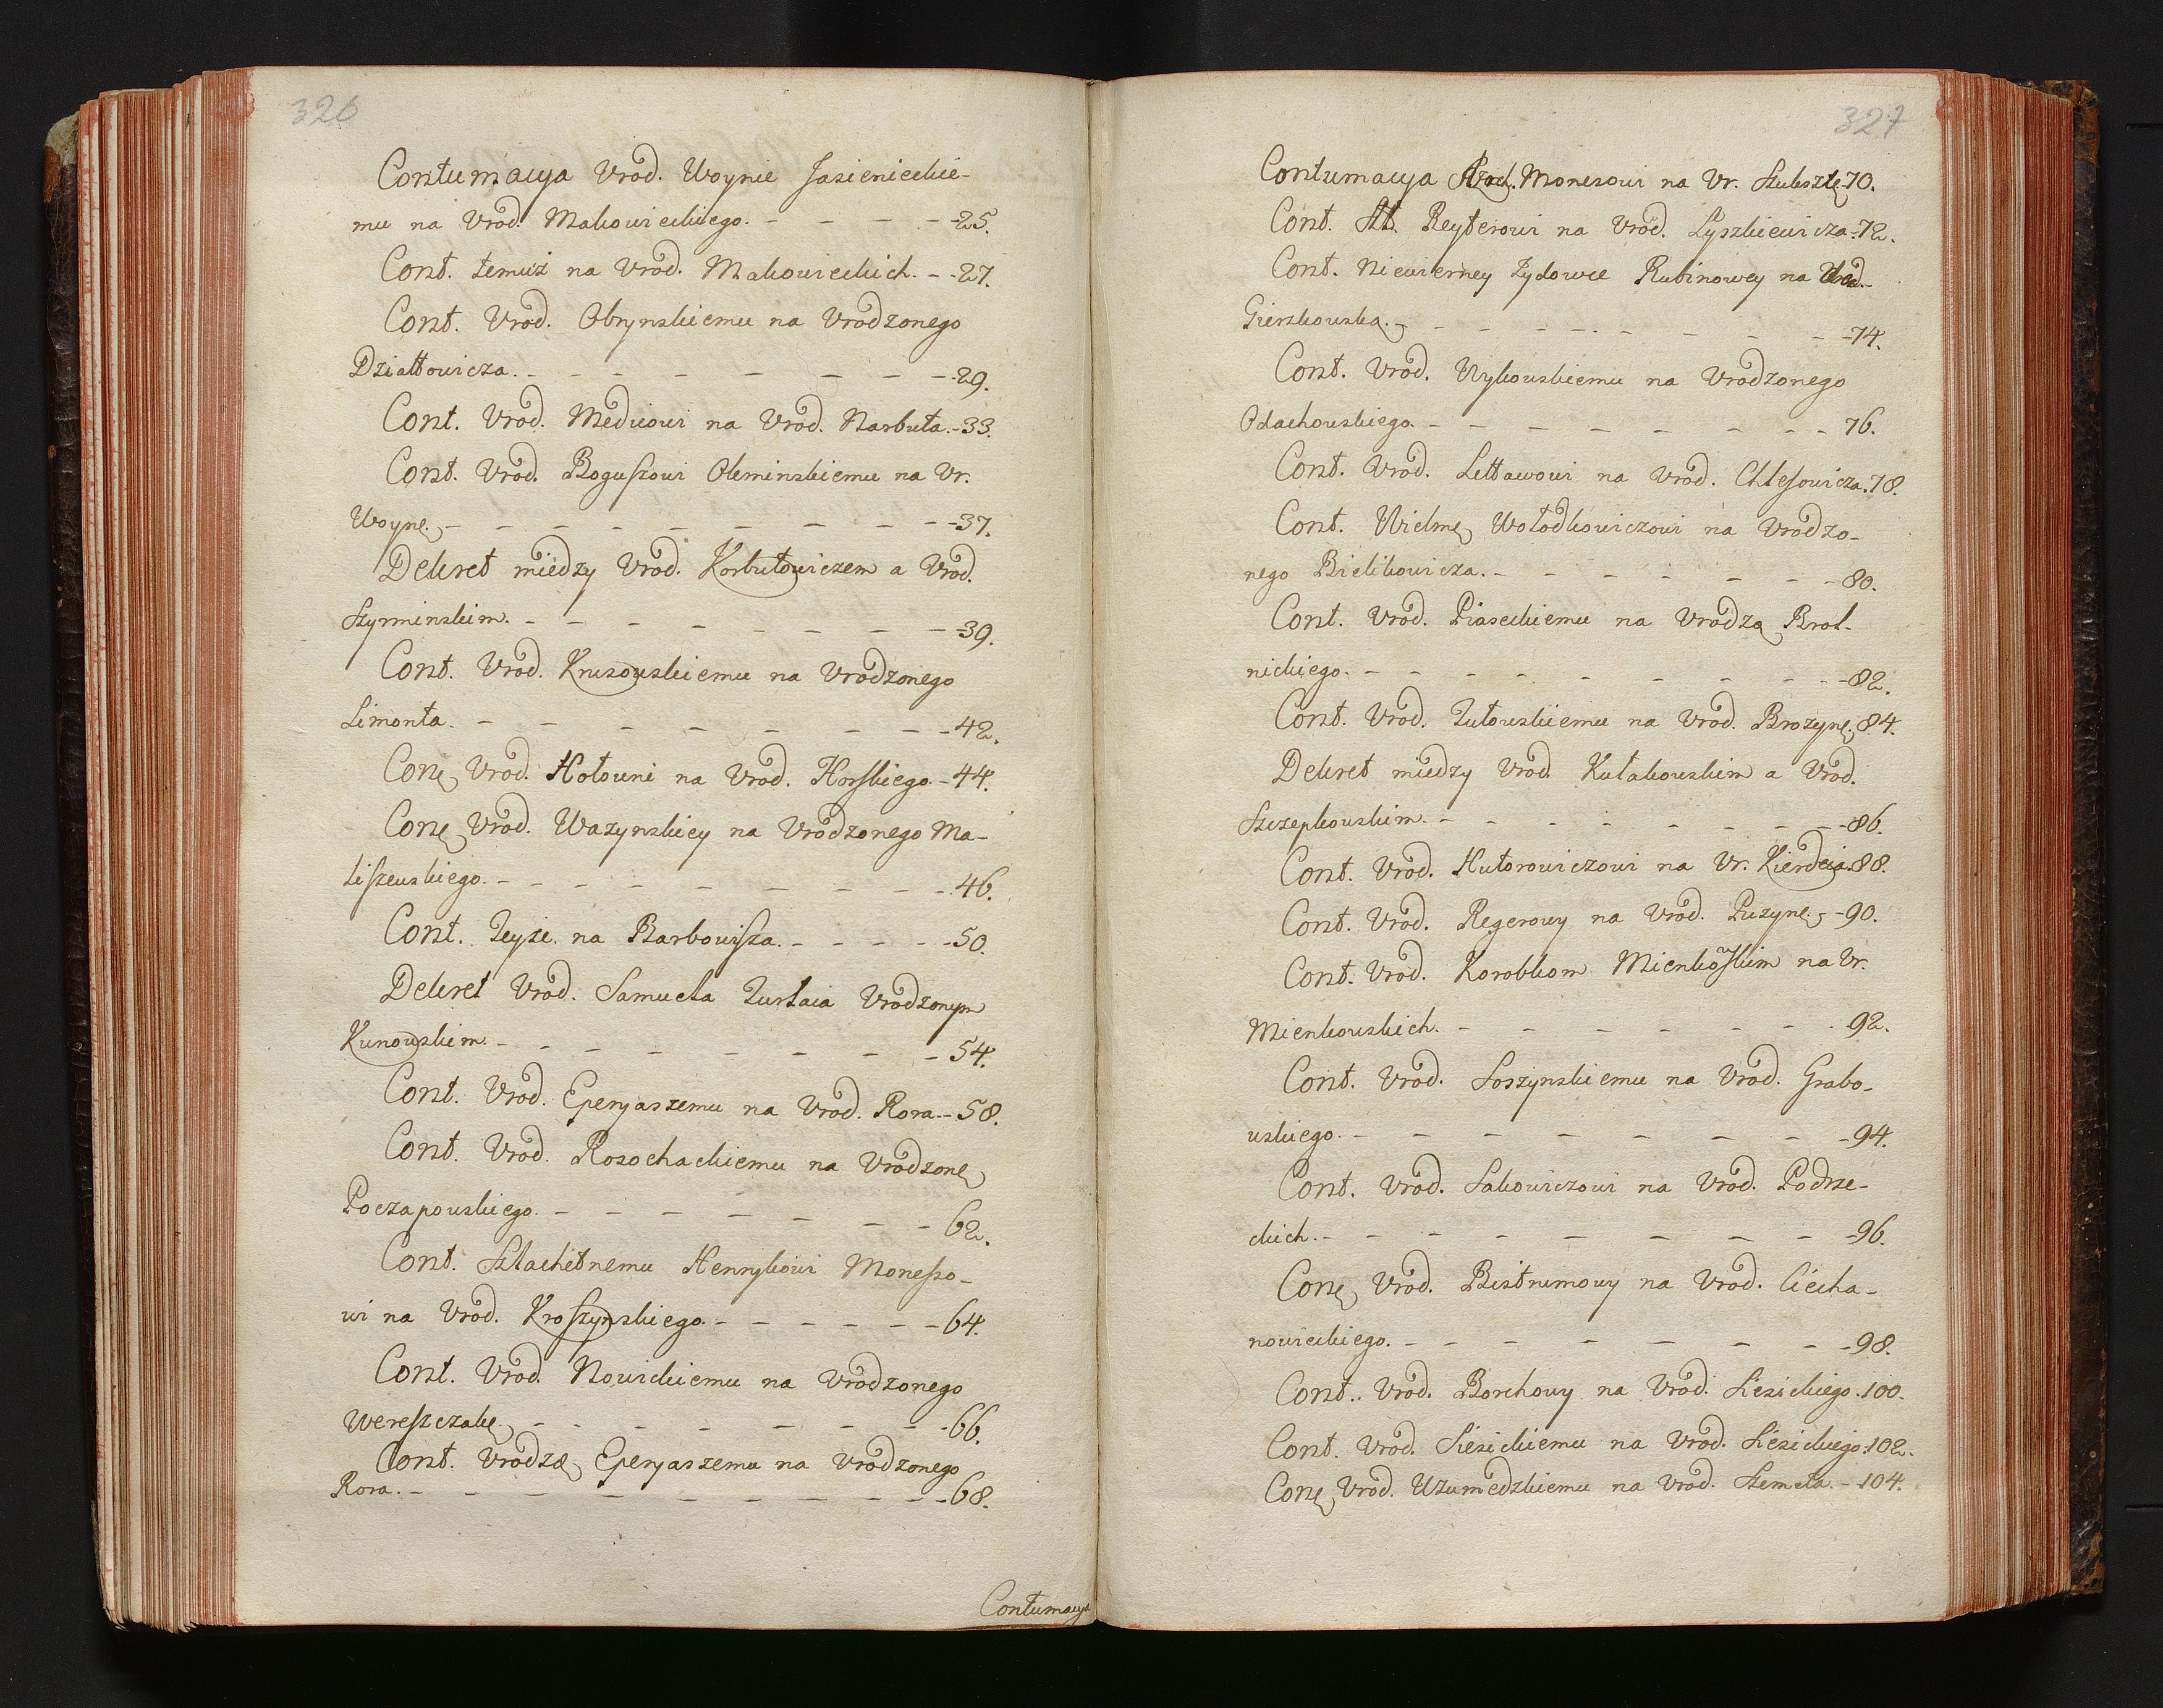 326
Contumacya Vrod. Woynie Jasienieckie-
mu na Vrod. Makowieckiego. - - - - - 25.
Cont. temuż na Vrod. Makowieckich. - - 27.
Cont. Vrod. Obrynskiemu na Vrodzonego
Działtowicza. - - - - - - - - 29.
Cont. Vrod. Medicowi na Vrod. Narbuta. - 33.
Cont. Vrod. Boguszowi Oleminskiemu na Vr.
Woynę. - - - - - - - - - - 37.
Dekret między Vrod. Korbutowiczem a Vrod.
Szyrminskim. - - - - - - - - 39.
Cont. Vrod. Knusowskiemu na Vrodzonego
Limonta. - - - - - - - - 42.
Conę Vrod. Hołowni na Vrod. Horskiego - 44.
Conę Vrod. Wazynskiey na Vrodzonego Ma-
liszewskiego. - - - - - - - - 46.
Cont. Zeyze. na Barbowisza. - - - - - 50.
Dekret Vrod. Samuela Zurtaia Vrodzonym
Kunowskim. - - - - - - - - 54.
Cont. Vrod. Eperyaszemu na Vrod. Rora. - 58.
Cont. Vrod. Rosochackiemu na Vrodzonę
Poczapowskiego. - - - - - - - 62.
Cont. Szlachetnemu Henrykowi Moneszo-
wi na Vrod. Kroszynskiego. - - - - - - 64.
Cont. Vrod. Nowickiemu na Vrodzonego
Wereszczakę. - - - - - - - - 66.
Cont. Vrodzę Eperyaszemu na Vrodzonego
Rora. - - - - - - - - - - 68.
Contumacya
327
Contumacya Monesowi na Vr. Szuksztę 70.
Cont. Szl. Reyterowi na Vrod. Łyszkiewicza - 72.
Cont. Niewierney Żydowce Rubinowey na Vrod.
Gierszkowską. - - - - - - - - 74.
Cont. Vrod. Wykowskiemu na Vrodzonego
Odachowskiego. - - - - - - - - 76.
Cont. Vrod. Lettawowi na Vrod. Chlesowicza. 78.
Cont. Wielmę Wołodkowiczowi na Vrodzo-
nego Bielikowicza. - - - - - - - 80.
Cont. Vrod. Piaseckiemu na Vrodzą Brol-
nickiego. - - - - - - - - - 82.
Cont. Vrod. Zutowskiemu na Vrod. Brozynę. 84.
Dekret między Vrod. Kułakowskim a Vrod.
Szczepkowskim. - - - - - - - - 86.
Cont. Vrod. Hutorowiczowi na Vr. Kierdeia. 88.
Cont. Vrod. Regerowy na Vrod. Puzynę. - 90.
Cont. Vrod. Korobkom Mienkowskim na Vr.
Mienkowskich. - - - - - - - 92.
Cont. Vrod. Soszynskiemu na Vrod. Grabo-
wskiego. - - - - - - - - 94.
Cont. Vrod. Sakowiczowi na Vrod. Podrze-
ckich. - - - - - - - - - 96.
Conę Vrod. Bistrumowy na Vrod. Ciecha-
nowieckiego. - - - - - - - - 98.
Cont. Vrod. Borchowy na Vrod. Siesickiego. 100.
Cont. Vrod. Siesickiemu na Vrod. Siesickiego. 102.
Conę Vrod. Uzumedzkiemu na Vrod. Szemeta. - 104.